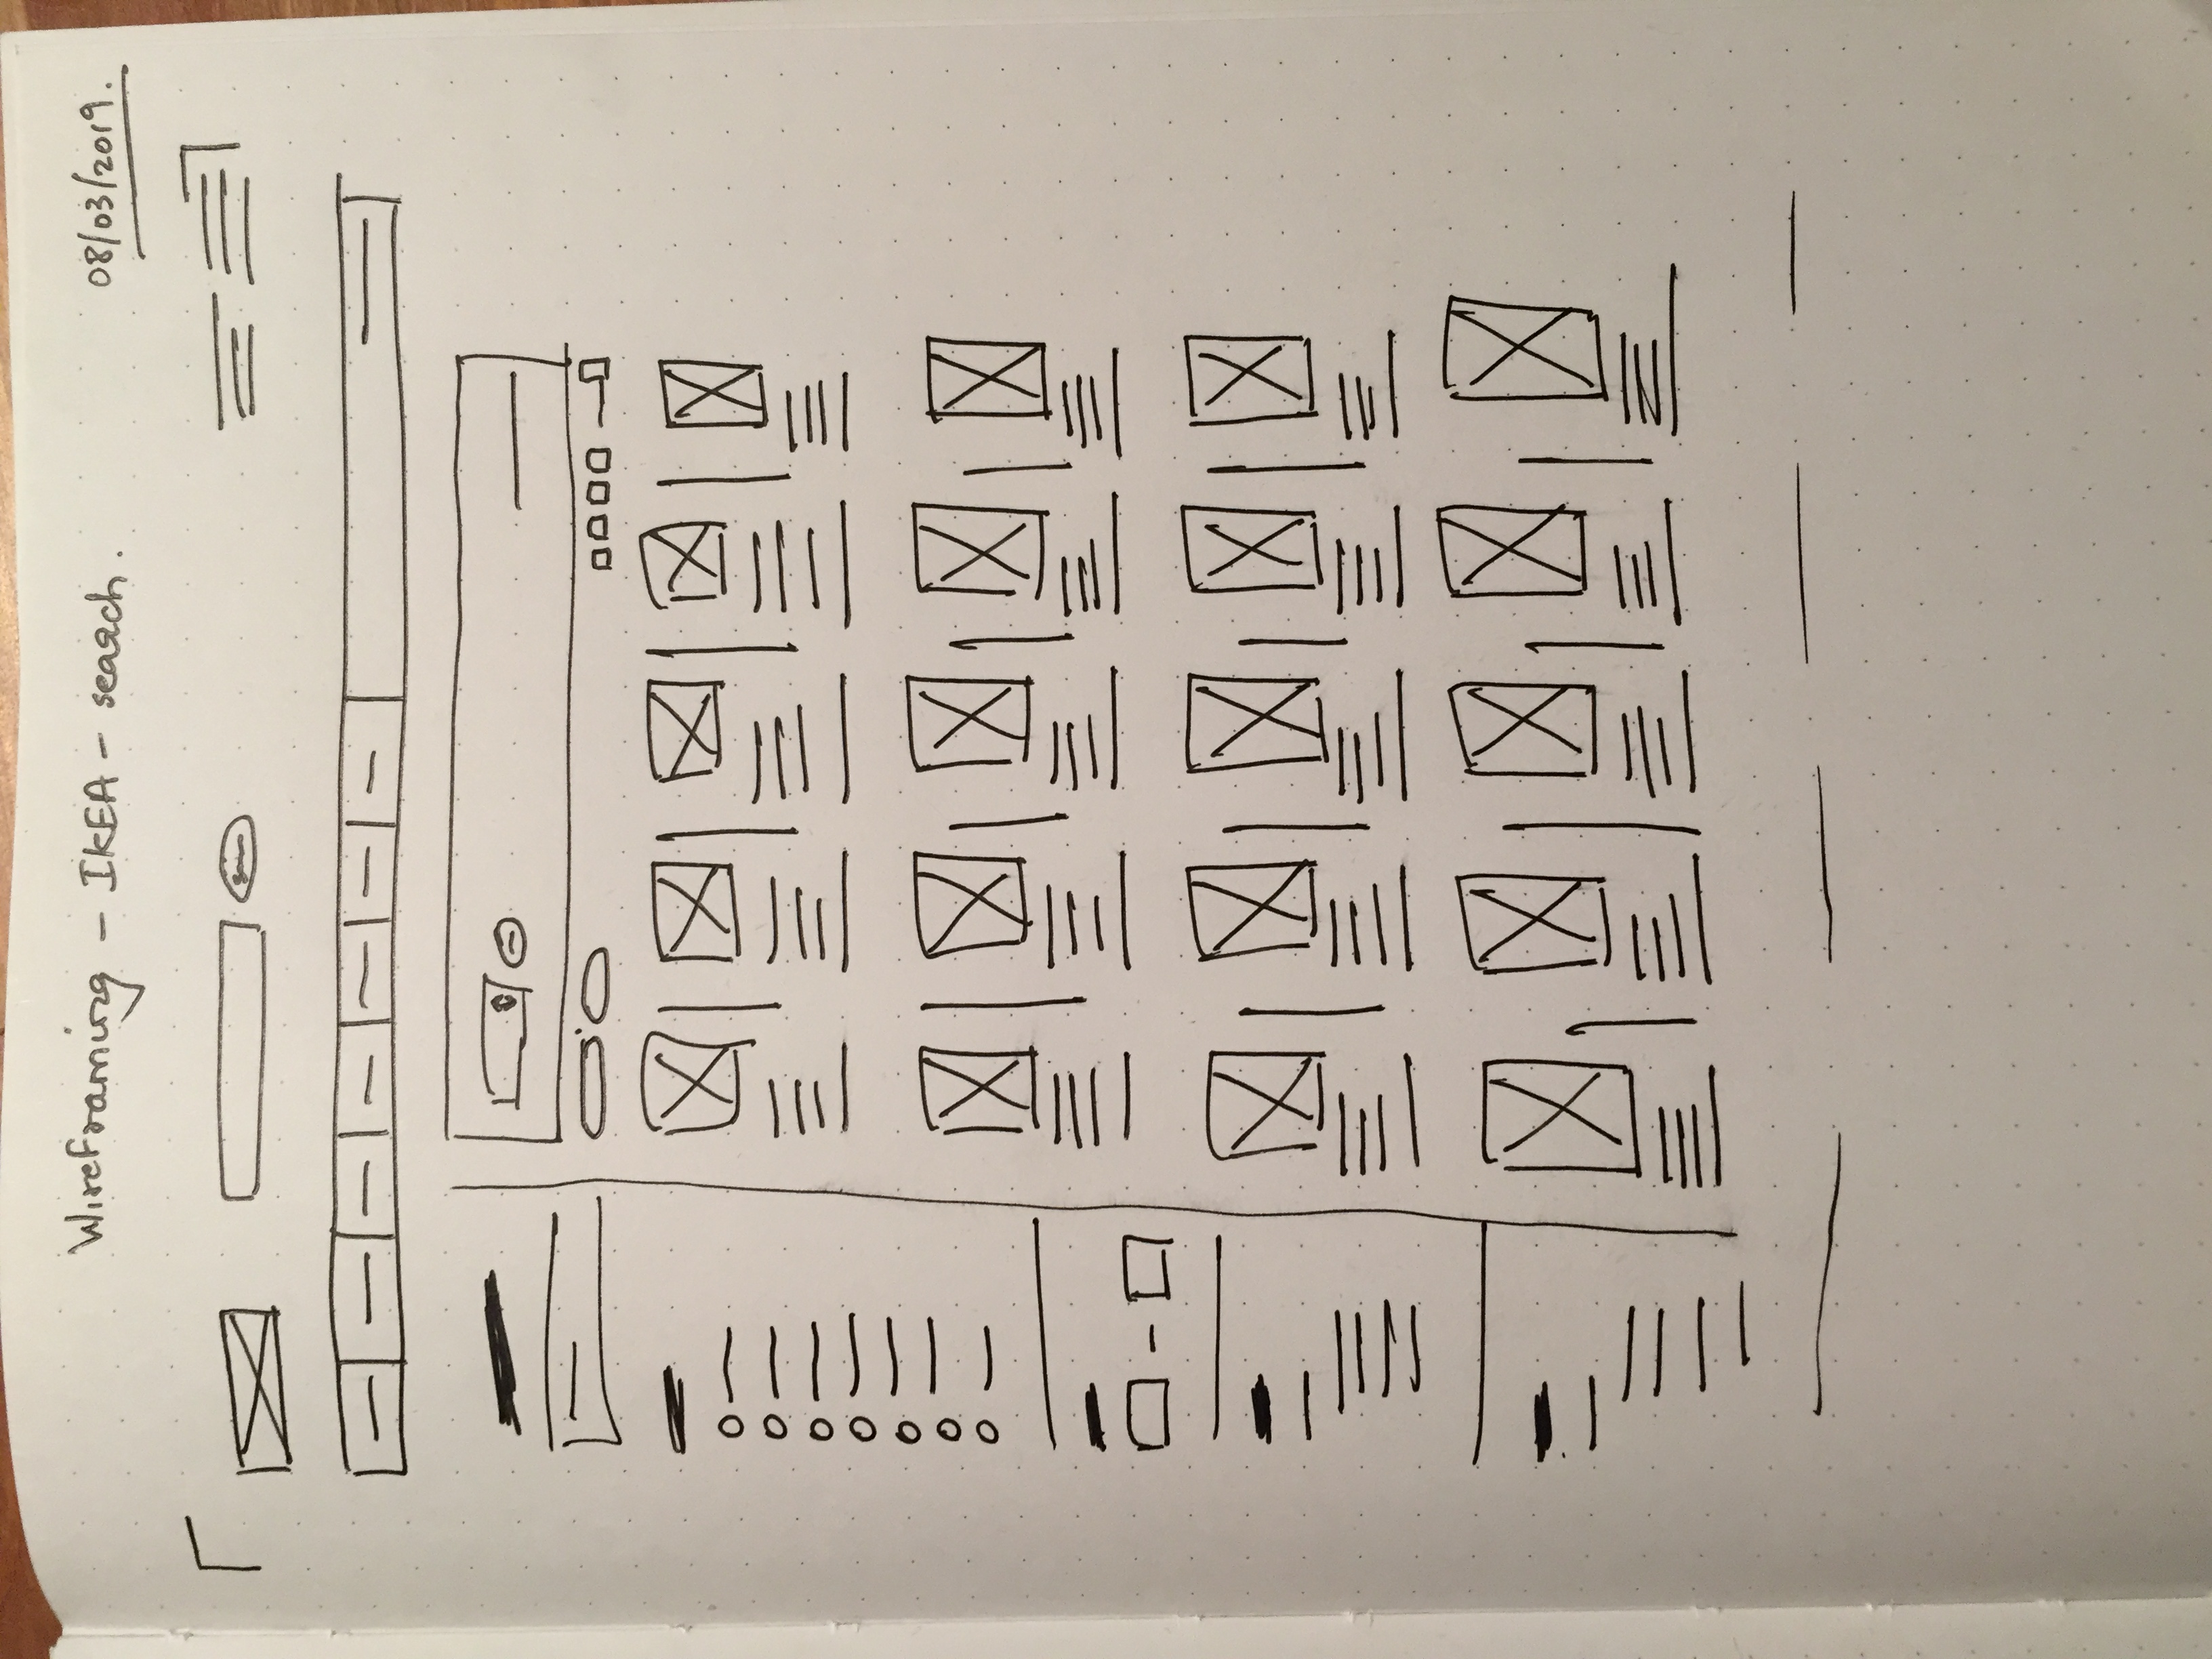 Wireframing - IKEA - search.
08/03/2019.